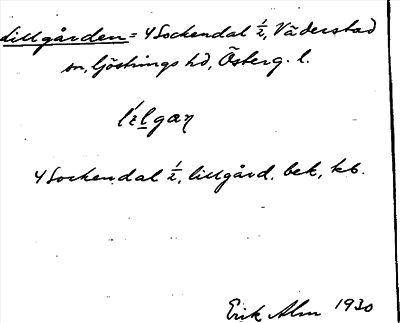 Lillgården = 4 Sockendal ½, Väderstad
sn, Göstrings hd, Österg. l.
4 Sockendal ½, lillgård. bek, kb.
Erik Alm 1930